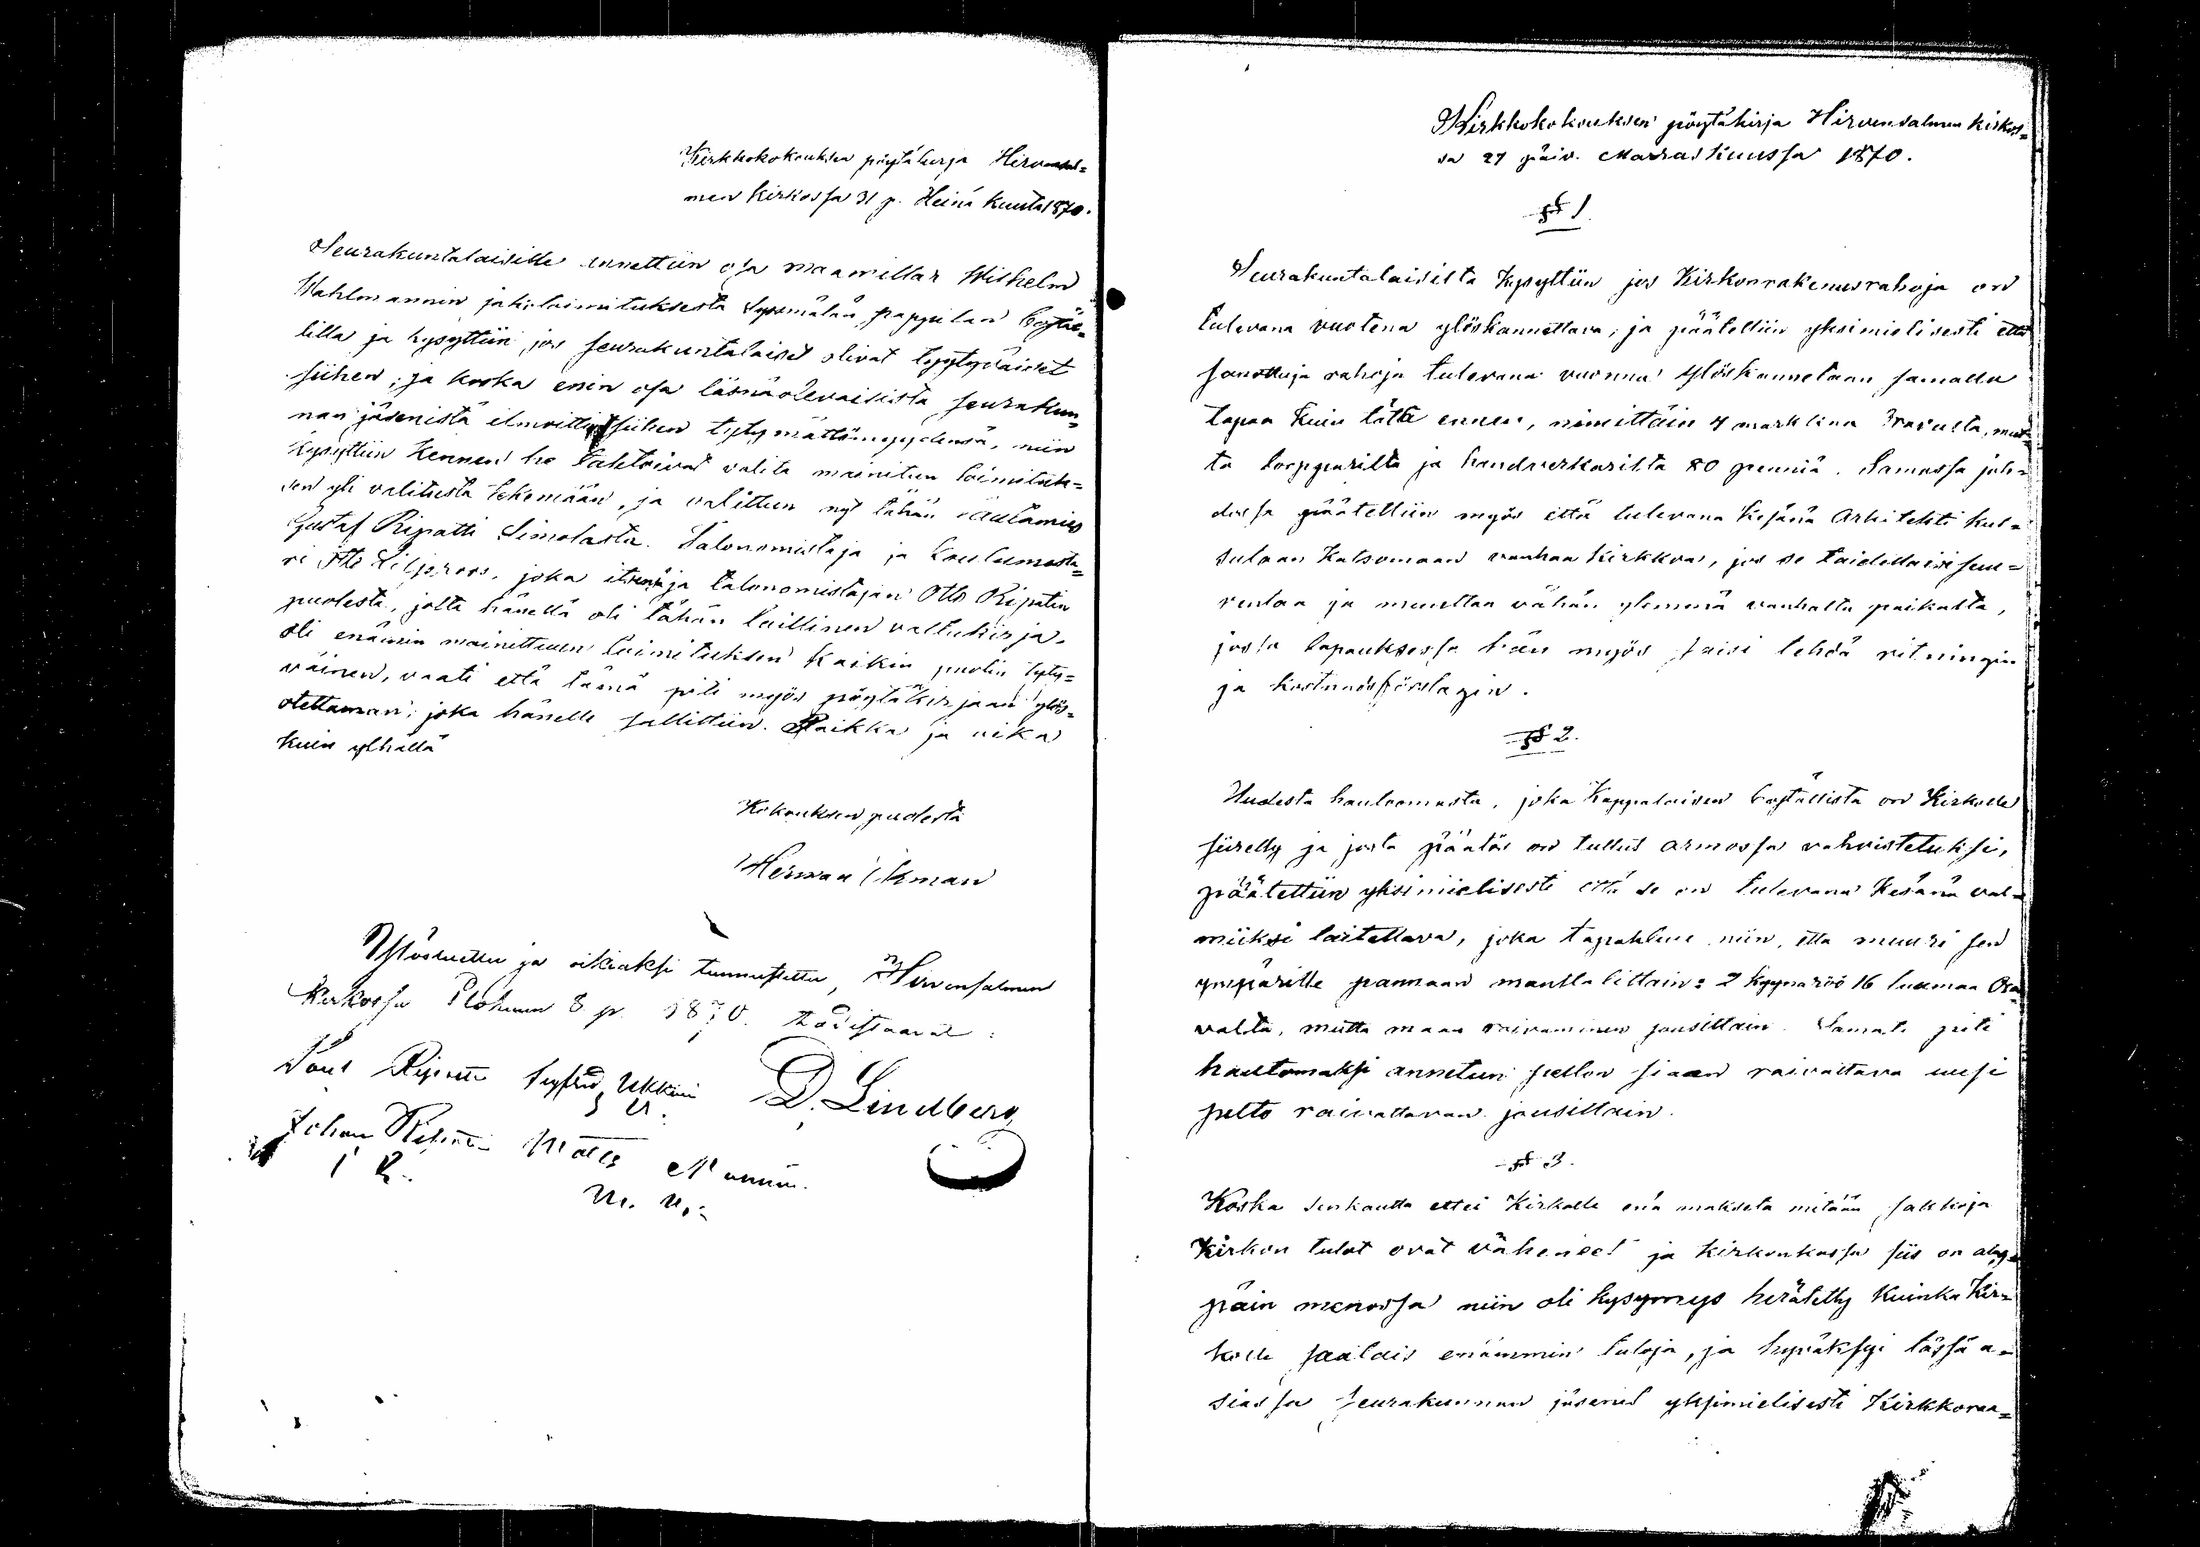 Kirkkokokouksen pöytäkirja Hirvensal=
men Kirkossa 31 p. Heinä kuuta 1870.
Seurakuntalaisille annettiin osa maamittar Wilhelm
Wahlmannin jakotoimituksesta Sysmälän pappilan bostäl=
lilla ja kysyttiin jos seurakuntalaiset olivat tyytyväiset
siihen; ja koska enin osa läsnäolevaisista seurakun=
nan jäsenistä ilmoitti siihen tytymättömyydensä, niin
kysyttiin kennen he tahtoivat valita mainitun toimituk=
sen yli valitusta tekemään, ja valittiin nyt tähän Lautamies
Gustaf Ripatti Simolasta. Talonomistaja ja
ri Otto joka itsensä ja talonomistajan Otto Ripatin
puolesta, jolta hänellä oli tähän laillinen valtakirja,
oli enämin mainittuun toimituksen kaikin puolin tyty=
väinen, vaati että tämä piti myös pöytäkirjaan ylös=
otettaman; joka hänelle sallittiin. Paikka ja aika
kuin ylhällä
Kokouksen puolesta
Herman Ikman
Ylösluettu ja oikiaksi tunnustettu, Hirvensalmen
Kirkossa Elokuun 8 p. 1870. todistavat:
Paul Ripatti Sigfrid Ukkoin D. Lindberg
S U.
Johan Ripatti Matts Mannin.
I R. M. M.
Kirkkokokouksen pöytäkirja Hirvensalmen kirkos=
sa 27 päiv. Marraskuussa 1870.
§ 1.
Seurakuntalaisilta kysyttiin jos Kirkonrakennusrahoja on
tulevana vuotena ylöskannettava; ja päätettiin yksimielisesti että
sanottuja rahoja tulevana vuonna ylöskannetaan samalla
tapaa kuin tätä ennen, nimittäin 4 markkaa Savulta, mut=
ta torpparilta ja handverkarilta 80 penniä. Samassa joh=
dossa päätettiin myös että tulevana kesänä Arkitehti kut=
sutaan katsomaan vanhaa kirkkoa, jos se taidettaisi suu=
rentaa ja muuttaa vähän ylemmä vanhalta paikalta,
jossa tapauksessa hän myös saisi tehdä ritningin
ja kostnadsförslagin.
§ 2.
Uudesta hautomasta, joka Kappalaisen boställista on Kirkolle
siirretty ja josta päätös on tullut armossa vahvistetuksi,
päätettiin yksimielisesti että se on tulevana Kesänä val=
miiksi laitettava, joka tapahtuu niin, että muuri sen
ympärille pannaan manttalittain: 2 kyynäröö 16 tuumaa Osa=
valta, mutta maan raivaminen jousittain. Samate piti
hautomaksi annetun pellon siaan raivattava uusi
pelto raivattaman jousittain.
§ 3.
Koska senkautta ettei Kirkolle enä makseta mitään sakkoja
Kirkon tulot ovat vähenneet ja kirkonkassa siis on alas=
päin menossa niin oli kysymys herätetty kuinka Kir=
kolle saatais enämmin tuloja, ja hyväksyi tässä a=
siassa seurakunnan jäsenet yksimielisesti Kirkkoraa=